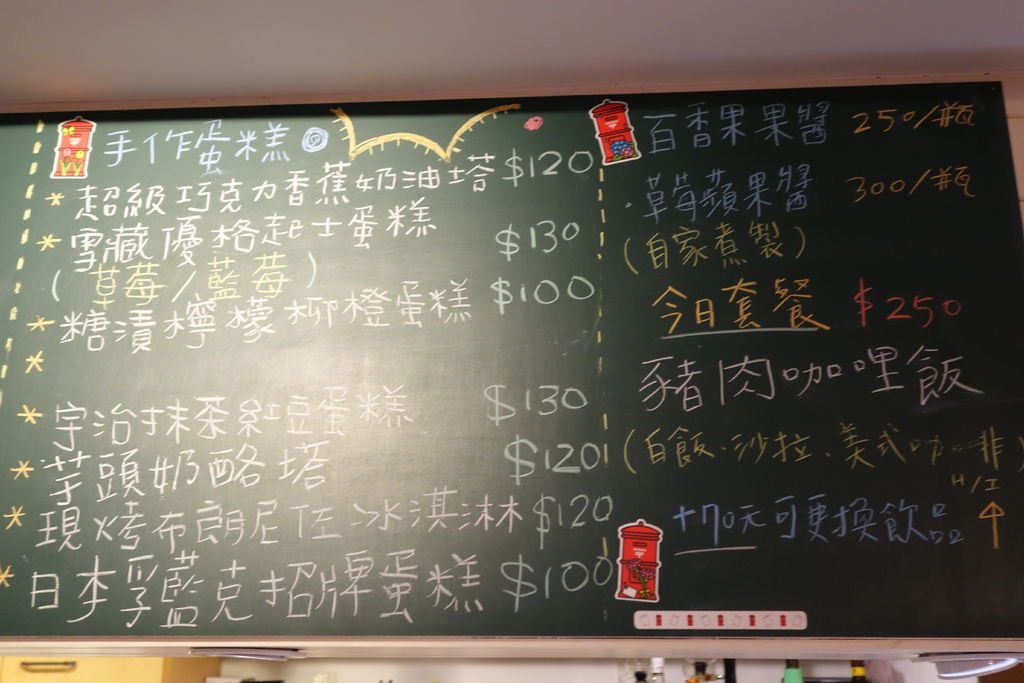 手作蛋糕
* 超級巧克力香蕉奶油塔 $120
* 雪藏優格起士蛋糕 $130
(草莓/藍莓)
* 糖漬檸檬柳橙蛋糕 $100
*
* 宇治抹茶紅豆蛋糕 $130
* 芋頭奶酪塔 $120
* 現烤布朗尼佐冰淇淋 $120
* 日本孚藍克招牌蛋糕 $100
百香果果醬 250/瓶
·草莓蘋果醬 300/瓶
(自家煮製)
今日套餐 $250
豬肉咖哩飯
(白飯、沙拉、美式咖啡)
H/I
+70元可更換飲品